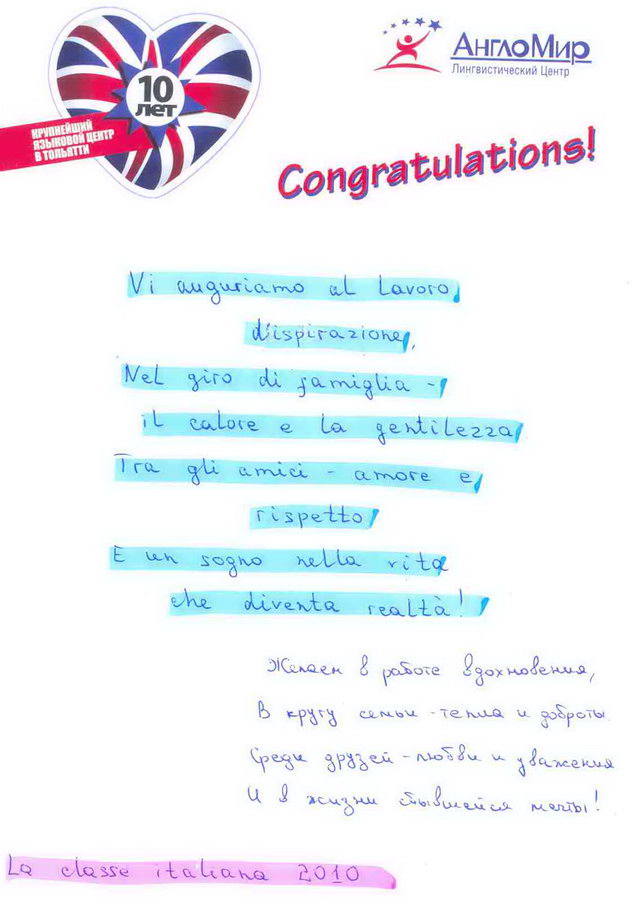 10
лет
КРУПНЕЙШИЙ
ЯЗЫКОВОЙ ЦЕНТР
В ТОЛЬЯТТИ
АнглоМир
Лингвистический Центр
Congratulations!
Vi auguriamo al lavoro
d'ispirazione,
Nel giro di famiglia -
il calore e la gentilezza
Tra gli amici - amore e
rispetto
E un sogno nella vita
che diventa realtà!
Желаем в работе вдохновения,
В кругу семьи - тепла и доброты
Среди друзей - любви и уважения
И в жизни сбывшейся мечты!
La classe italiana 2010